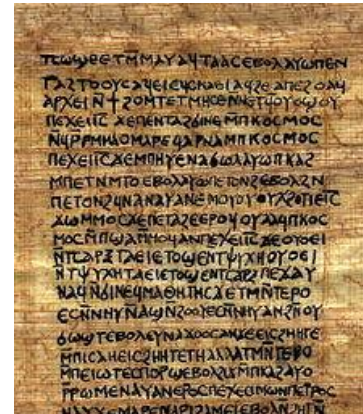 ⲡⲥⲱϣⲉⲉⲧⲙ̅ⲙⲁⲩⲁϥⲧⲁⲁⲥⲉⲃⲟⲗⲁⲩⲱⲡⲉⲛ
ⲧⲁϩⲧⲟⲟⲩⲥⲁϥⲉⲓⲉϥⲥⲕⲁⲉⲓⲁϥϩⲉⲁⲡⲉϩⲟⲁϥ
ⲁⲣⲭⲉⲓⲛ̅ϯϩⲟⲙⲧⲉⲧⲙⲏⲥⲉⲛⲛⲉⲧϥⲟⲩⲟϣⲟⲩ
ⲡⲉϫⲉⲓ̅ⲥ̅ϫⲉⲡⲉⲛⲧⲁϩϭⲓⲛⲉⲙ̅ⲡⲕⲟⲥⲙⲟⲥ
ⲛ̅ϥⲣ̅ⲣⲙⲙⲁⲟⲙⲁⲣⲉϥⲁⲣⲛⲁⲙⲡⲕⲟⲥⲙⲟⲥ
ⲡⲉϫⲉⲓ̅ⲥ̅ϫⲉⲙⲡⲏⲩⲉⲛⲁϭⲱⲗⲁⲩⲱⲡⲕⲁϩ
ⲙⲡⲉⲧⲛⲙⲧⲟⲉⲃⲟⲗⲁⲩⲱⲡⲉⲧⲟⲛϩⲉⲃⲟⲗϩⲛ
ⲡⲉⲧⲟⲛϩϥⲛⲁⲛⲁⲩⲁⲛⲉⲙⲟⲩⲟⲩⲭϩⲟⲧⲓⲉⲓ̅ⲥ̅
ϫⲱⲙⲙⲟⲥϫⲉⲡⲉⲧⲁϩⲉⲉⲣⲟϥⲟⲩⲁⲁϥⲡⲕⲟⲥ
ⲙⲟⲥⲙ̅ⲡϣⲁⲙⲙⲟϥⲁⲛⲡⲉϫⲉⲓ̅ⲥ̅ϫⲉⲟⲩⲟⲉⲓ
ⲛ̅ⲧⲥⲁⲣⲝⲧⲁⲉⲓⲉⲧⲟϣⲉⲛⲧⲯⲩⲭⲏⲟⲩⲟⲉⲓ
ⲛ̅ⲧⲯⲩⲭⲏⲧⲁⲉⲓⲉⲧⲟϣⲉⲛⲧⲥⲁⲣⲝⲡⲉϫⲁⲩ
ⲛⲁϥⲛ̅ϭⲓⲛⲉϥⲙⲁⲑⲏⲧⲏⲥϫⲉⲧⲙⲛ̅ⲧⲉⲣⲟ
ⲉⲥⲛ̅ⲛⲏⲩⲛⲁϣⲛ̅ϩⲟⲟⲩⲉⲥⲛ̅ⲛⲏⲩⲁⲛϩⲛⲟⲩ
ϭⲱϣⲧⲉⲃⲟⲗⲉⲩⲛⲁϫⲟⲟⲥⲁⲛϫⲉⲉⲓⲥϩⲏⲏⲧⲉ
ⲙⲡⲓⲥⲁⲏⲉⲓⲥϩⲏⲏⲧⲉⲧⲏⲁⲗⲗⲁⲧⲙⲛ̅ⲧⲉⲣⲟ
ⲙⲡⲉⲓⲱⲧⲉⲥⲡⲟⲣϣⲉⲃⲟⲗϩⲓϫⲙⲡⲕⲁϩⲁⲩⲱ
ⲣ̅ⲣⲱⲙⲉⲛⲁⲩⲁⲛⲉⲣⲟⲥⲡⲉϫⲉⲥⲓⲙⲱⲛⲡⲉⲧⲣⲟⲥ
ⲛⲁⲩϫⲉⲙⲁⲣⲉⲙⲁⲣⲓϩⲁⲙⲉⲓⲉⲃⲟⲗⲛ̅ϩⲏⲧⲛ̅